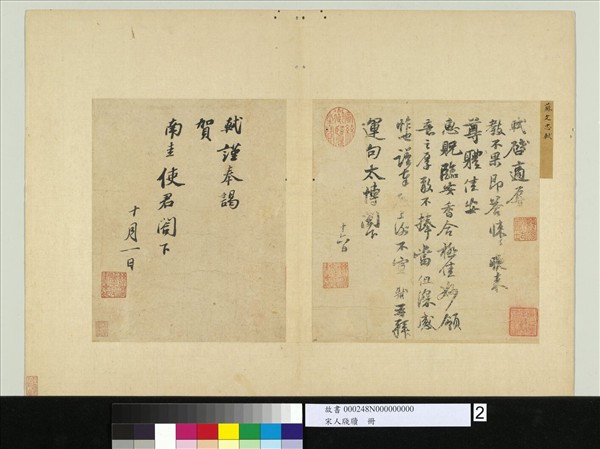 蘇文忠軾
軾啟適辱
教不果即答悚悚晚來
尊體佳安
惠貺臨安香合極佳妙領
意之厚敢不捧當但深感
怍也謹奉啟上謝不宣軾再拜
運句太博閣下
十六日
軾謹奉謁
賀
南圭使君閣下
十月一日
故書 000248N000000000
宋人牋牘 冊
2